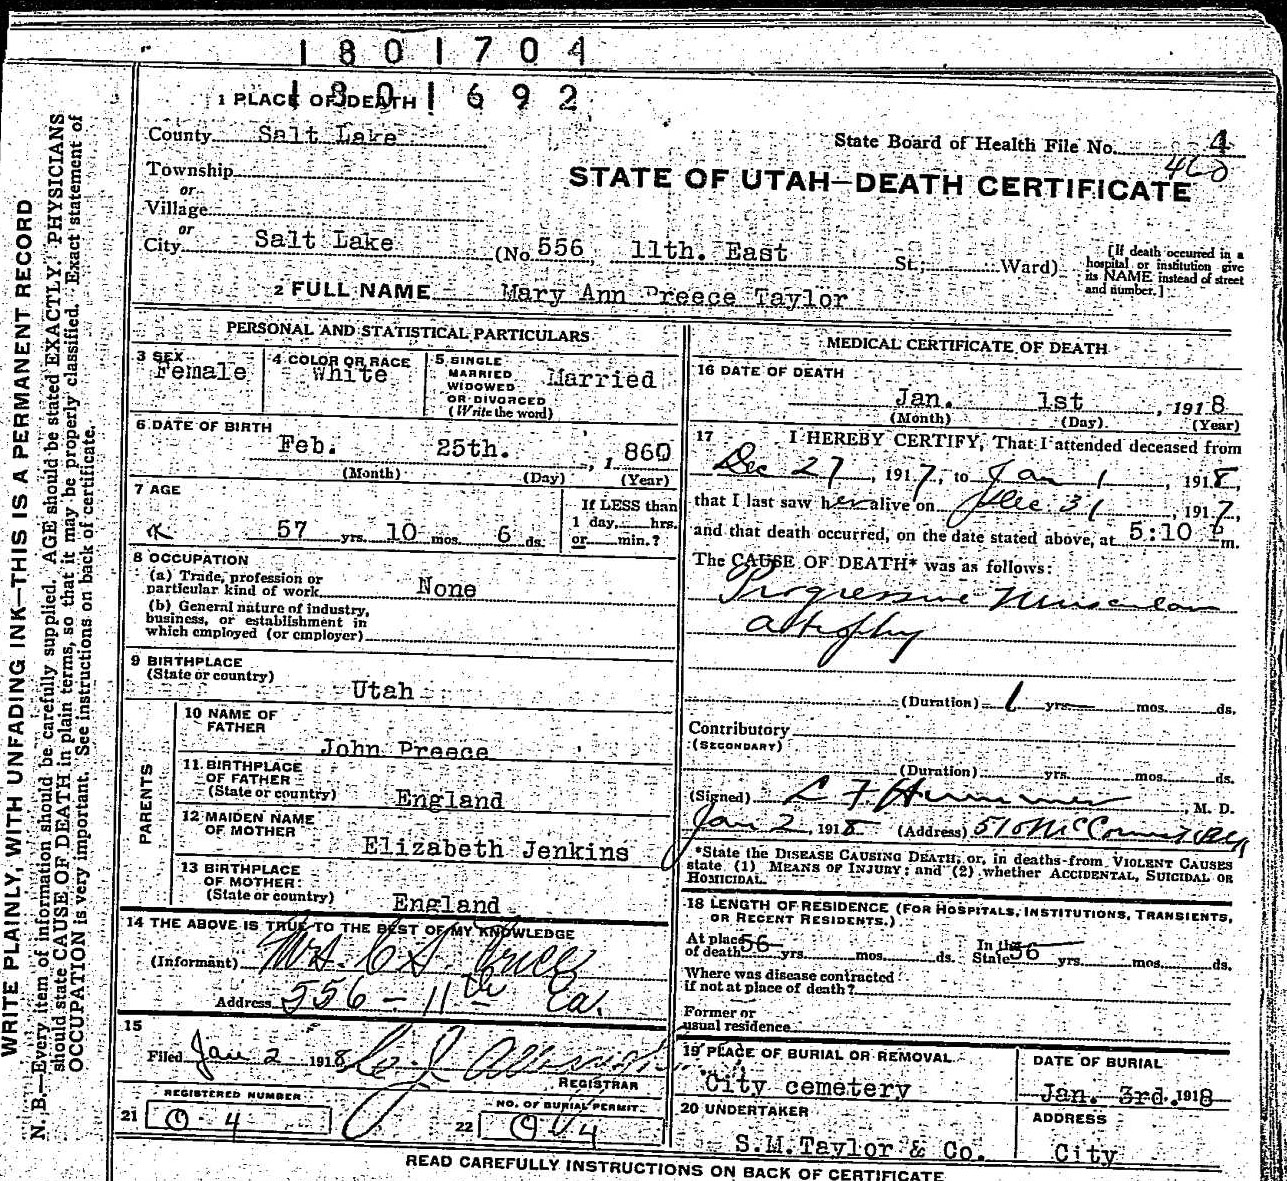 1801704
1801692
1 PLACE OF DEATH
County Salt Lake
State Board of Health File No. 4
460
Township
or
Village
or
City Salt Lake (No 556 11th. East St; Ward)
[If death occurred in a hospital or institution give its NAME instead of street and number.]
STATE OF UTAH—DEATH CERTIFICATE
2 FULL NAME Mary Ann Preece Taylor
PERSONAL AND STATISTICAL PARTICULARS
3 SEX Female
4 COLOR OR RACE White
5 SINGLE MARRIED WIDOWED OR DIVORCED (Write the word) Married
6 DATE OF BIRTH
Feb. 25th. , 1 860
(Month) (Day) (Year)
7 AGE
57 yrs. 10 mos. 6 ds.
If LESS than 1 day, hrs. or min.?
8 OCCUPATION
(a) Trade, profession or particular kind of work None
(b) General nature of industry, business, or establishment in which employed (or employer)
9 BIRTHPLACE
(State or country)
Utah
PARENTS
10 NAME OF FATHER
John Preece
11 BIRTHPLACE OF FATHER
(State or country) England
12 MAIDEN NAME OF MOTHER
Elizabeth Jenkins
13 BIRTHPLACE OF MOTHER
(State or country) England
14 THE ABOVE IS TRUE TO THE BEST OF MY KNOWLEDGE
(Informant) Mrs. C S.
Address 556 - 11th Ea.
15
Filed Jan 2 1918
REGISTRAR
REGISTERED NUMBER
21 0-4
NO. OF BURIAL PERMIT
22
MEDICAL CERTIFICATE OF DEATH
16 DATE OF DEATH
Jan. 1st , 1918
(Month) (Day) (Year)
17 I HEREBY CERTIFY, That I attended deceased from
Dec 27, 1917, to Jan 1, 1918,
that I last saw her alive on Dec 31, 1917,
and that death occurred, on the date stated above, at 5:10 P m.
The CAUSE OF DEATH* was as follows:
Progressive Muscular
atrophy
(Duration) 1 yrs. mos. ds.
Contributory
(SECONDARY)
(Duration) yrs. mos. ds.
(Signed) , M. D.
Jan 2, 1918 (Address) 510 McCornick Bldg
*State the DISEASE CAUSING DEATH, or, in deaths from VIOLENT CAUSES
state (1) MEANS OF INJURY; and (2) whether ACCIDENTAL, SUICIDAL OR
HOMICIDAL.
18 LENGTH OF RESIDENCE (FOR HOSPITALS, INSTITUTIONS, TRANSIENTS,
OR RECENT RESIDENTS.)
At place of death 56 yrs. mos. ds. In the State 56 yrs. mos. ds.
Where was disease contracted
if not at place of death?
Former or
usual residence
19 PLACE OF BURIAL OR REMOVAL
City cemetery
DATE OF BURIAL
Jan. 3rd. 1918
20 UNDERTAKER
S.M.Taylor & Co.
ADDRESS
City
READ CAREFULLY INSTRUCTIONS ON BACK OF CERTIFICATE
WRITE PLAINLY, WITH UNFADING INK—THIS IS A PERMANENT RECORD
N. B.—Every item of information should be carefully supplied. AGE should be stated EXACTLY. PHYSICIANS
should state CAUSE OF DEATH in plain terms, so that it may be properly classified. Exact statement of
OCCUPATION is very important. See instructions on back of certificate.